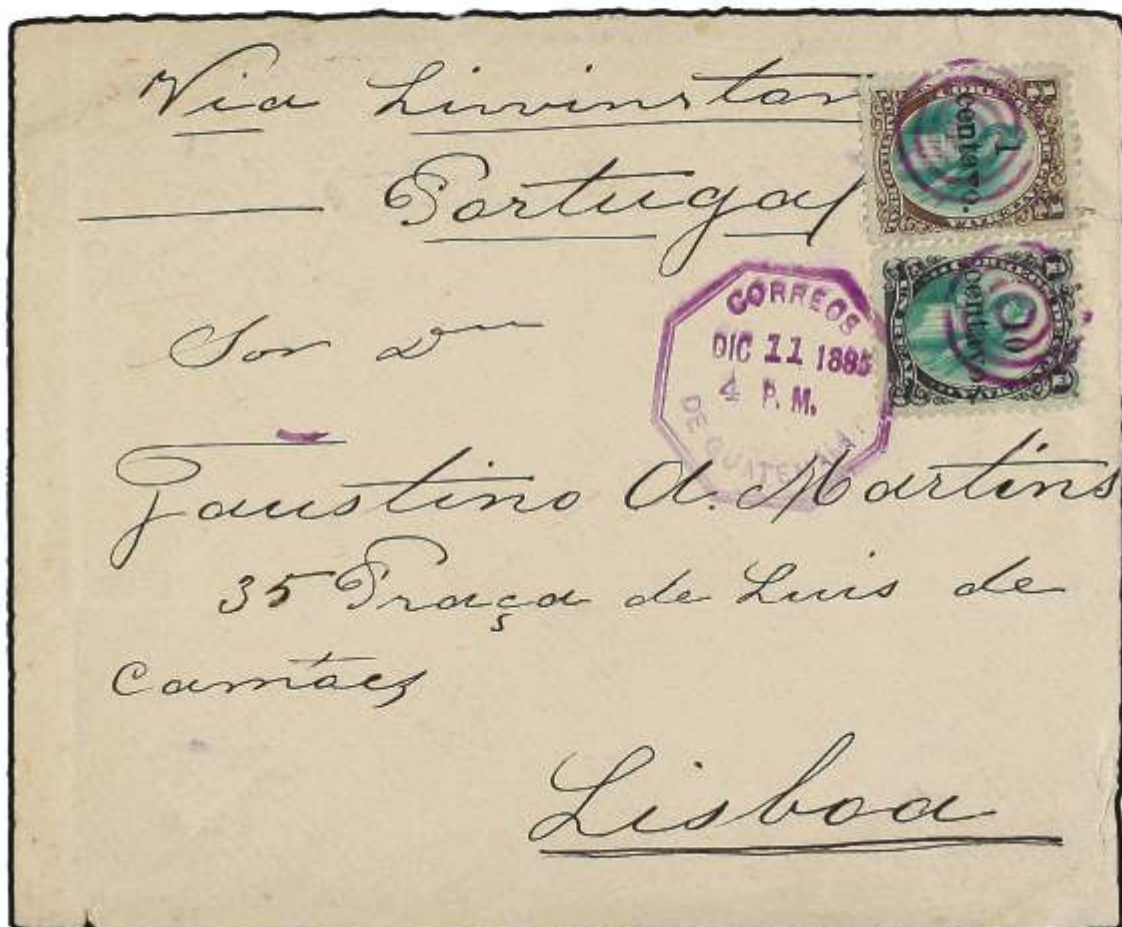 Via Livvinston
Portugal
1
centavo.
10
centavos.
CORREOS
DIC 11 1885
4 P.M.
DE GUATEMALA.
Sor Dn
Faustino A. Martins
35 Praça de Luis de
Camões
Lisboa